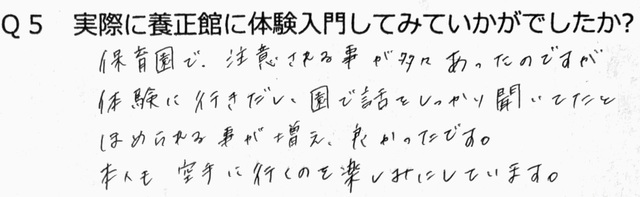 Q5 実際に養正館に体験入門してみていかがでしたか?
保育園で、注意される事が多々あったのですが
体験に行きだし、園で話をしっかり聞いてたと
ほめられる事が増え、良かったです。
本人も空手に行くのを楽しみにしています。